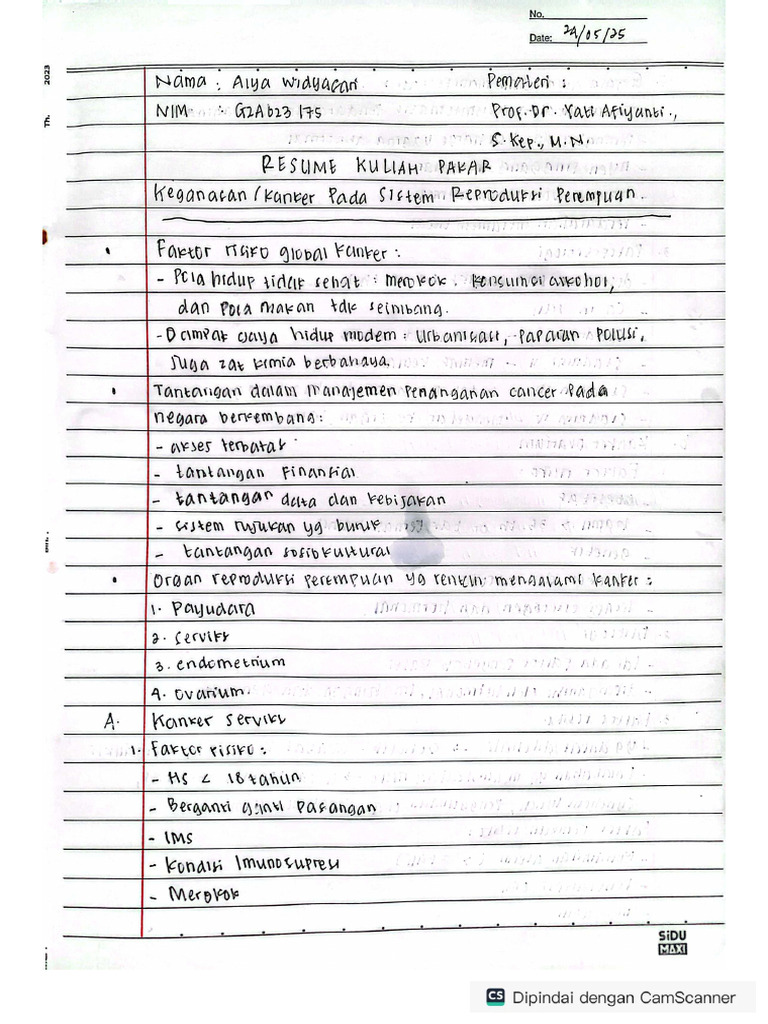 No.
Date: 29/05/25
Th. 2023
Nama : Alya Widyasari Pemateri :
NIM : G2A623175 Prof. Dr. Yati Afiyanti.,
S. Kep., M.N.
RESUME KULIAH PAKAR
Keganasan / Kanker Pada Sistem Reproduksi Perempuan.
• Faktor risiko global kanker :
- Pola hidup tidak sehat : merokok . Konsumsi alkohol,
dan Pola makan tdk seimbang.
- Dampak gaya hidup modern : Urbanisasi, Paparan Polusi,
Juga zat kimia berbahaya.
• Tantangan dalam manajemen Penanganan cancer Pada
negara berkembang :
- akses terbatas
- tantangan Finansial
- tantangan data dan kebijakan
- sistem rujukan yg buruk
- tantangan sosiokultural
• Organ reproduksi perempuan yg rentan mengalami kanker :
1. Payudara
2. serviks
3. endometrium
4. ovarium
A. Kanker Serviks
1. Faktor risiko :
- HS < 18 tahun
- Berganti ganti Pasangan
- IMS
- Kondisi Imunosupresi
- Merokok
SiDU
MAXI
CS Dipindai dengan CamScanner